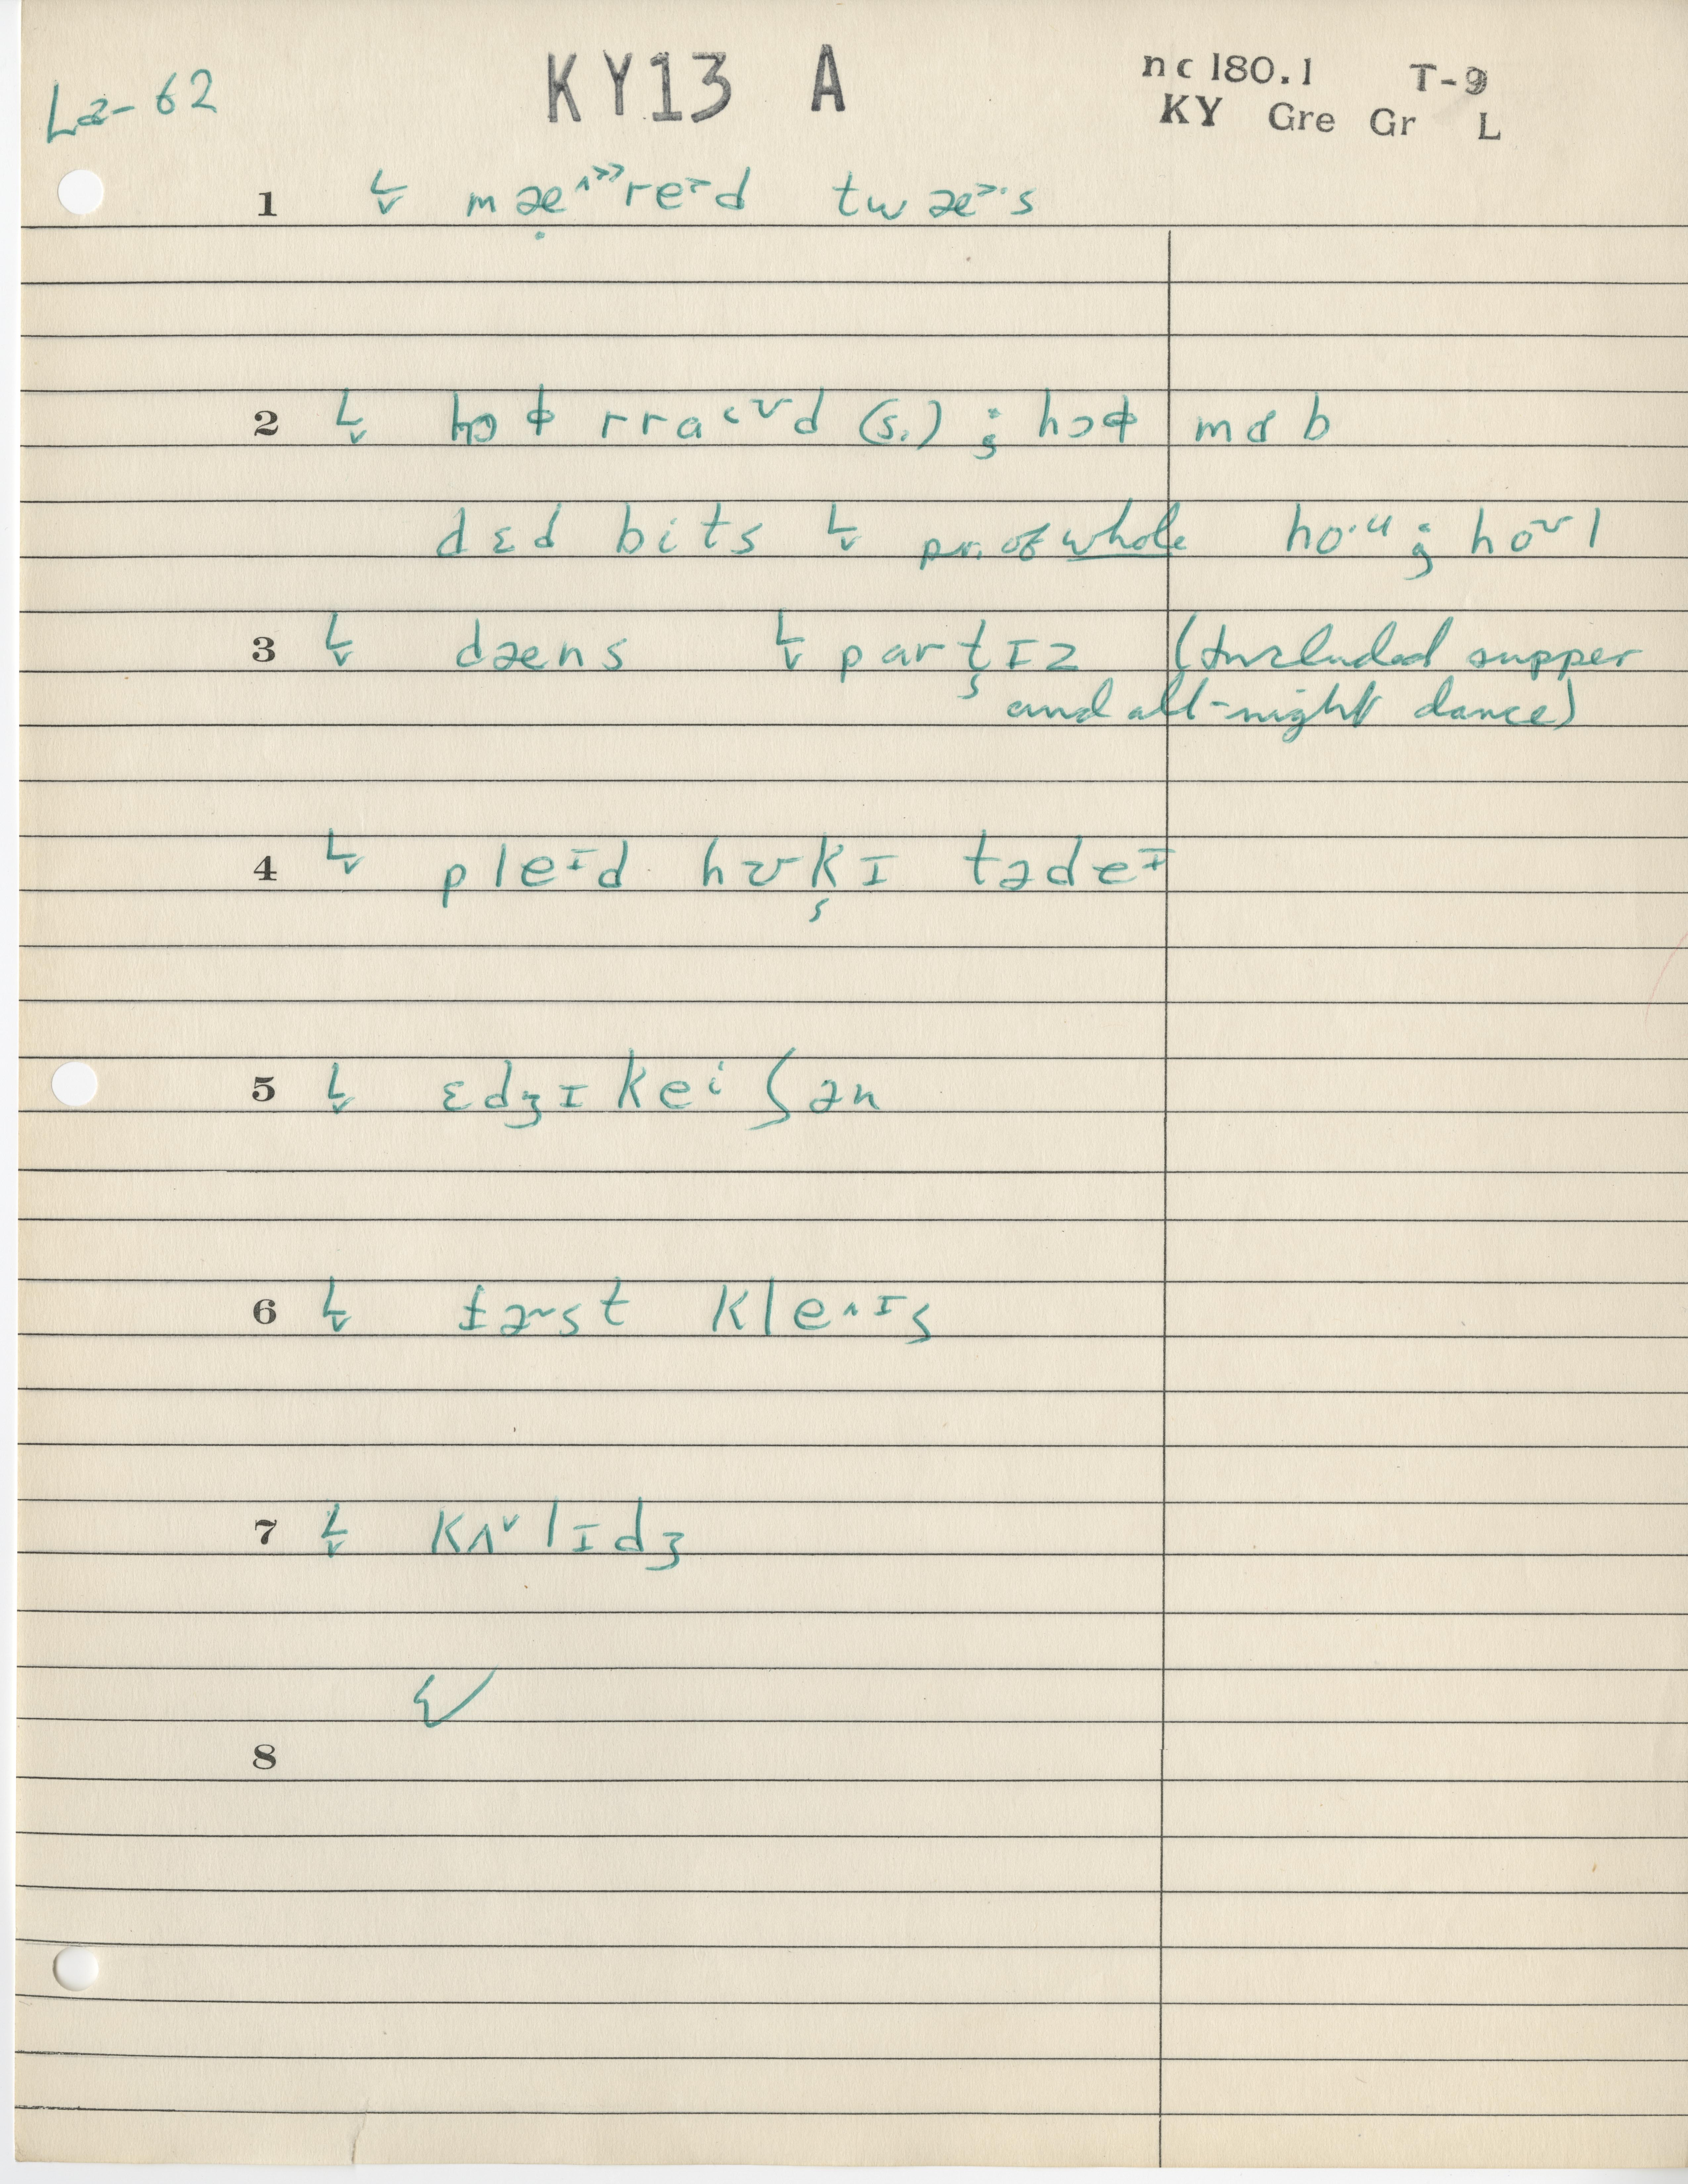 La-62
KY13 A
nc 180.1 T-9
KY Gre Gr L
1 mæ^>>re>d twæ>·s
2 hɔɸ rraᵋᶷd (s.) ; hɔɸ mɑb
dɛd bits pr. of whole ho·ᵘ ; hoᶷl
3 dæns partɪz (Included supper
and all-night dance)
4 pleɪd hʊkɪ tədeɪ
5 ɛdʒɪkeⁱʃən
6 klɛ^ɪs
7 kʌ˅lɪdʒ
8